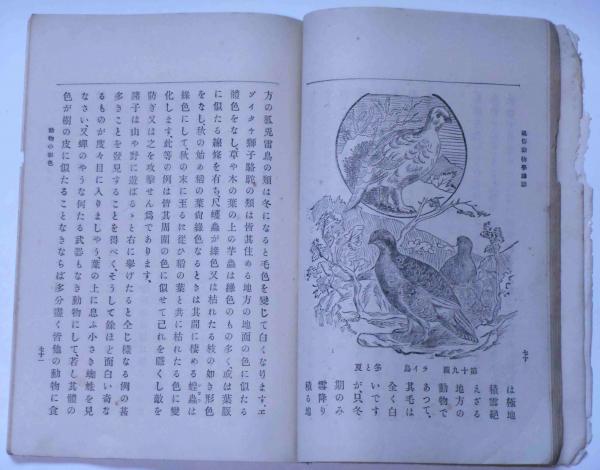 七十
第十九圖 ライ鳥 冬と夏
は極地
積雪絶
えざる
地方の
動物で
あつて、
其毛は
全く白
いです
が、只冬
期のみ
雪降り
積る地
方の狐兎雷鳥の類は冬になると毛色を變じて白くなります。エ
ゾイタチ獅子駱駝の類は皆其住める地方の地面の色に似たる
體色をなし、草や木の葉の上の芋蟲は綠色のもの多く、或は葉脈
に似たる線條を有ち、尺蠖蟲が綠色又は枯れたる枝の如き形色
をなし、秋の始め稻の葉尙綠色なるときは其間に棲める蝗蟲は
綠色にして、秋の末に至るに從ひ稻の葉と共に枯れたる色に變
化します。此等の例は皆其周圍の色に似せて己れを匿くし敵を
防ぎ又は之を攻擊せん爲であります。
諸子は山や野に遊ばるゝと右に擧げたると全じ樣なる例の甚
多きことを發見することを得べく、そうして餘ほど面白い奇な
るものが度々目に入りましやう。葉の上に息ふ小さき蜘蛛を見
なさい、又蟬のやうな何たる武器もなき動物にして、若し其體の
色が樹の皮に似たることなきならば多分盡く皆他の動物に食
動物の彩色
七十一